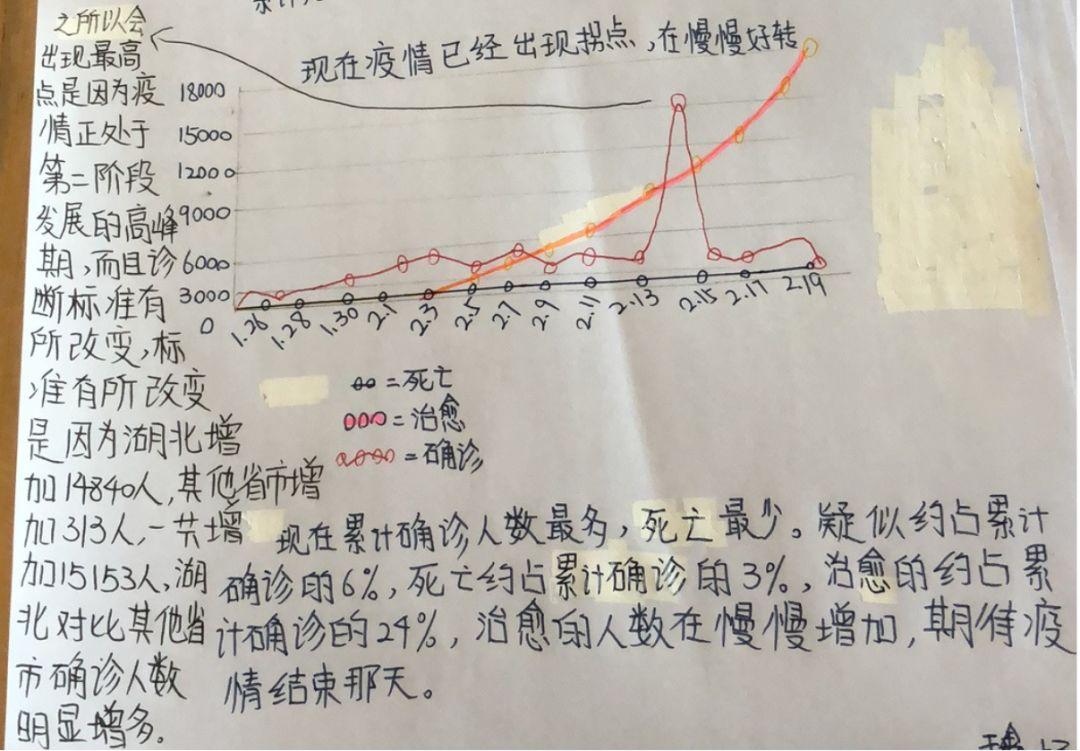 现在疫情已经出现拐点,在慢慢好转
之所以会
出现最高
点是因为疫
情正处于
第二阶段
发展的高峰
期,而且诊
断标准有
所改变,标
准有所改变
是因为湖北增
加14840人,其他省市增
加313人,一共增
加15153人,湖
北对比其他省
市确诊人数
明显增多。
18000
15000
12000
9000
6000
3000
0
1.26 1.28 1.30 2.1 2.3 2.5 2.7 2.9 2.11 2.13 2.15 2.17 2.19
=死亡
=治愈
=确诊
现在累计确诊人数最多,死亡最少。疑似约占累计
确诊的6%,死亡约占累计确诊的3%,治愈的约占累
计确诊的24%,治愈的人数在慢慢增加,期待疫
情结束那天。